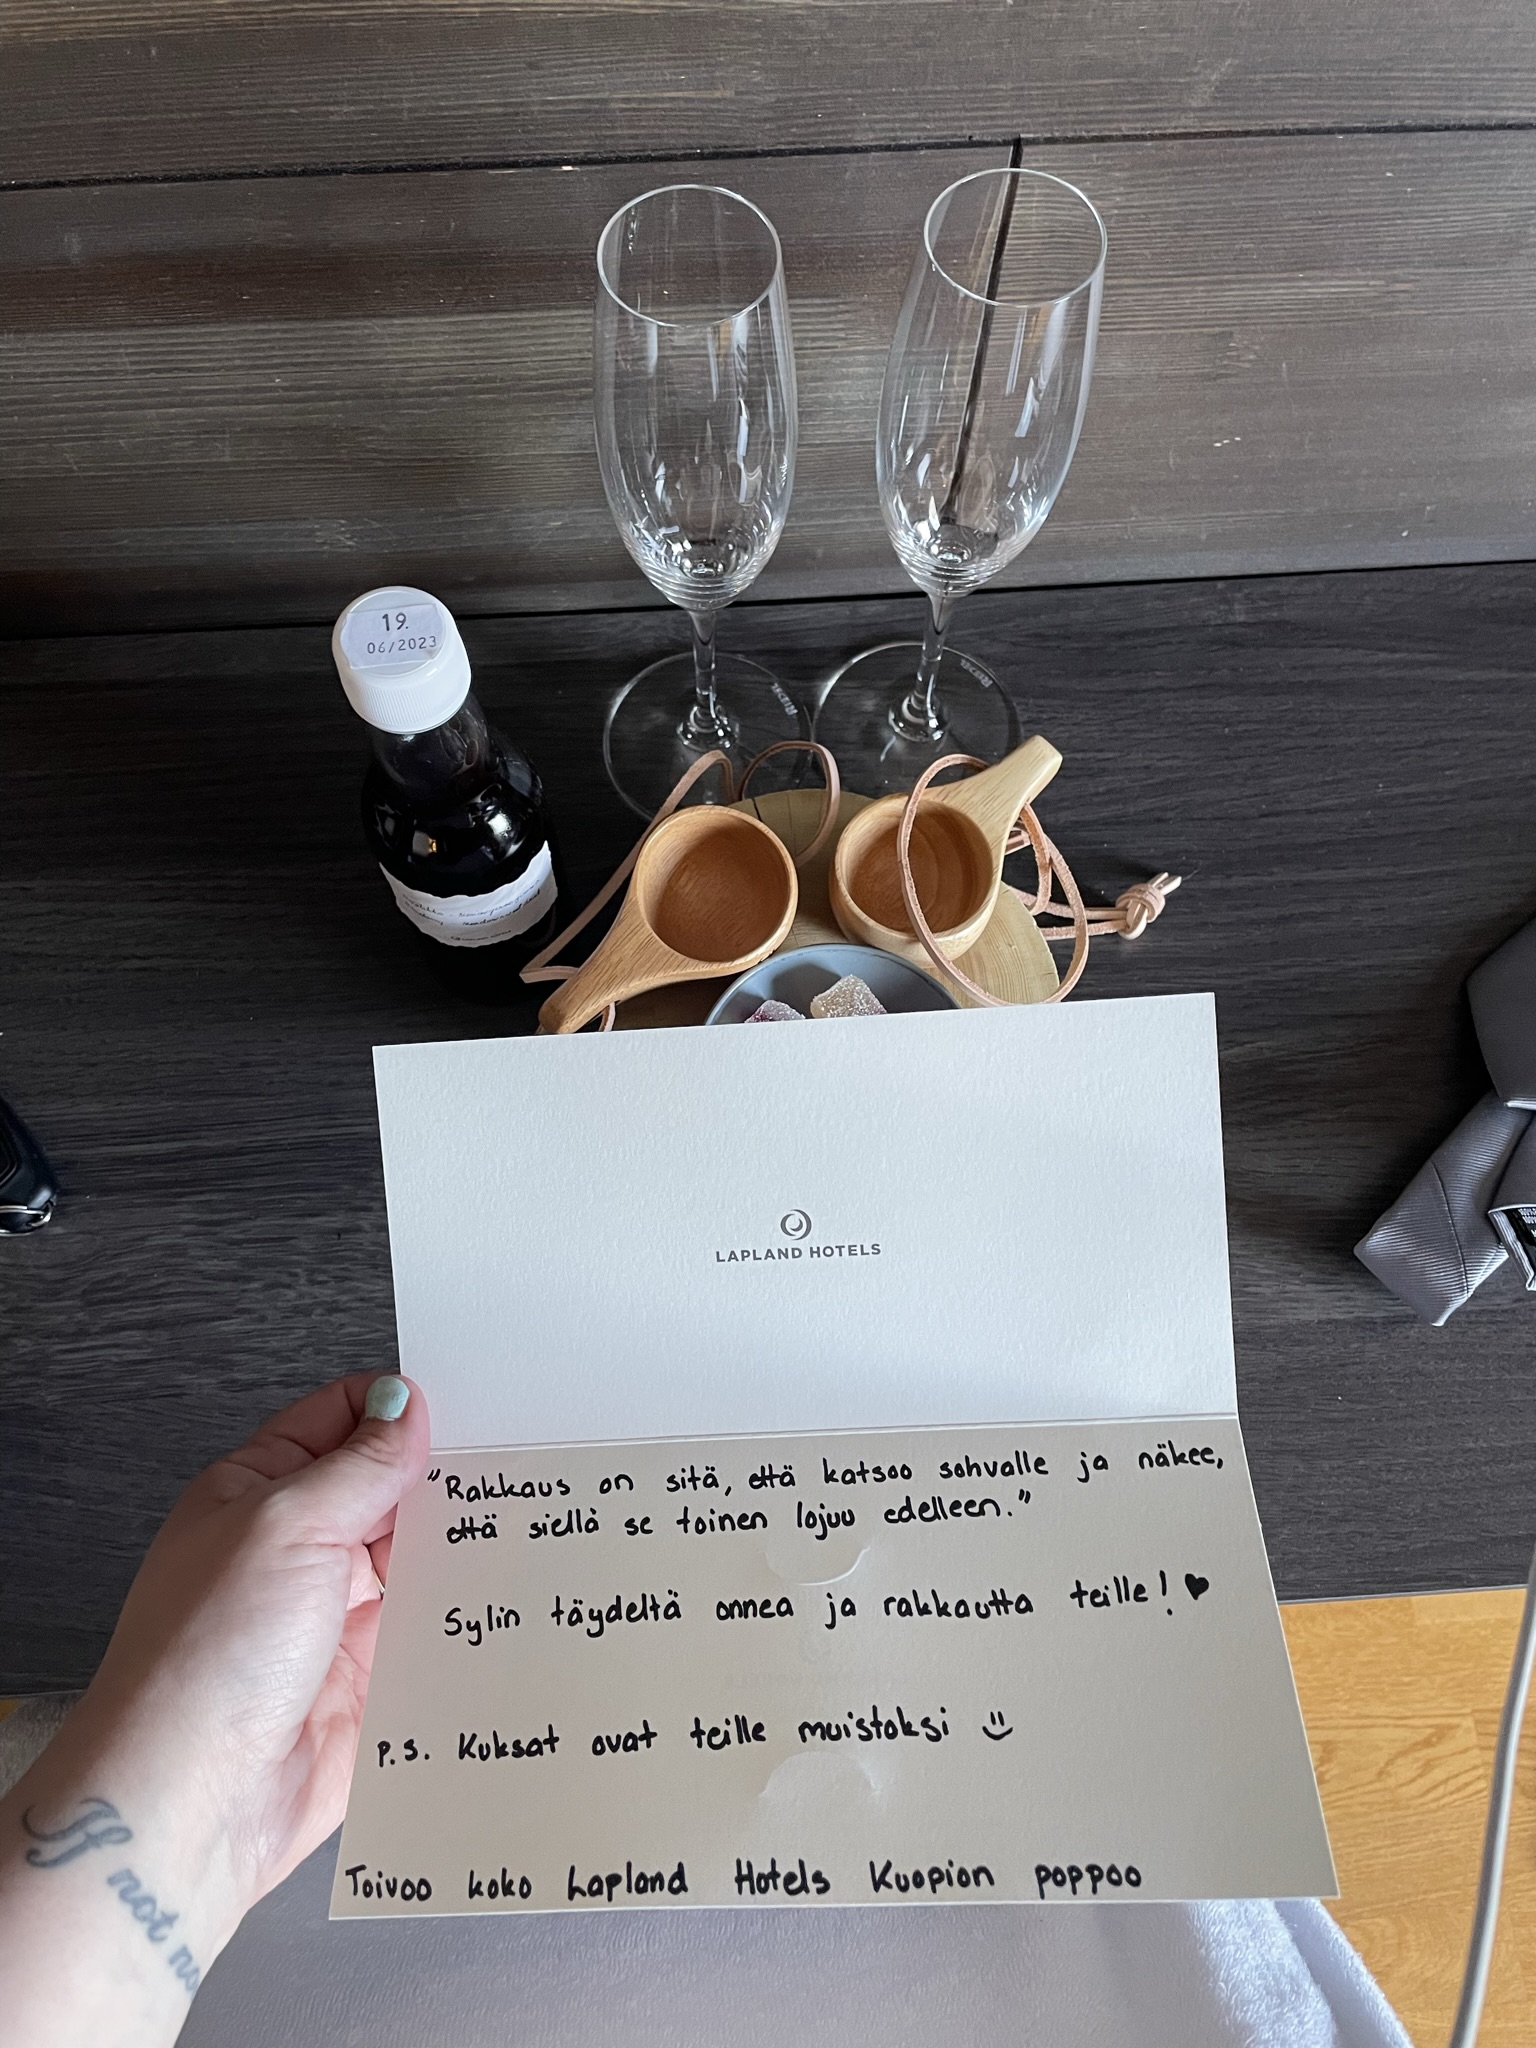 19.
06/2023
RIEDEL
RIEDEL
LAPLAND HOTELS
"Rakkaus on sitä, että katsoo sohvalle ja näkee,
että siellä se toinen lojuu edelleen."
Sylin täydeltä onnea ja rakkautta teille! ♥
P.S. Kuksat ovat teille muistoksi
Toivoo koko Lapland Hotels Kuopion poppoo
If not